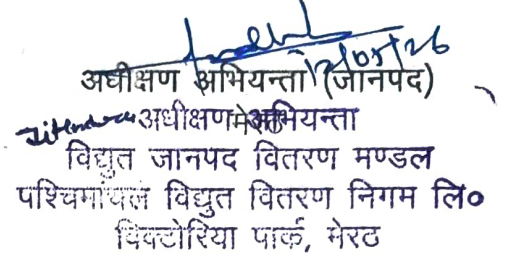 12/05/26
अधीक्षण अभियन्ता (जानपद)
मेरठ
Jitendra अधीक्षण अभियन्ता
विद्युत जानपद वितरण मण्डल
पश्चिमांचल विद्युत वितरण निगम लि०
विक्टोरिया पार्क, मेरठ